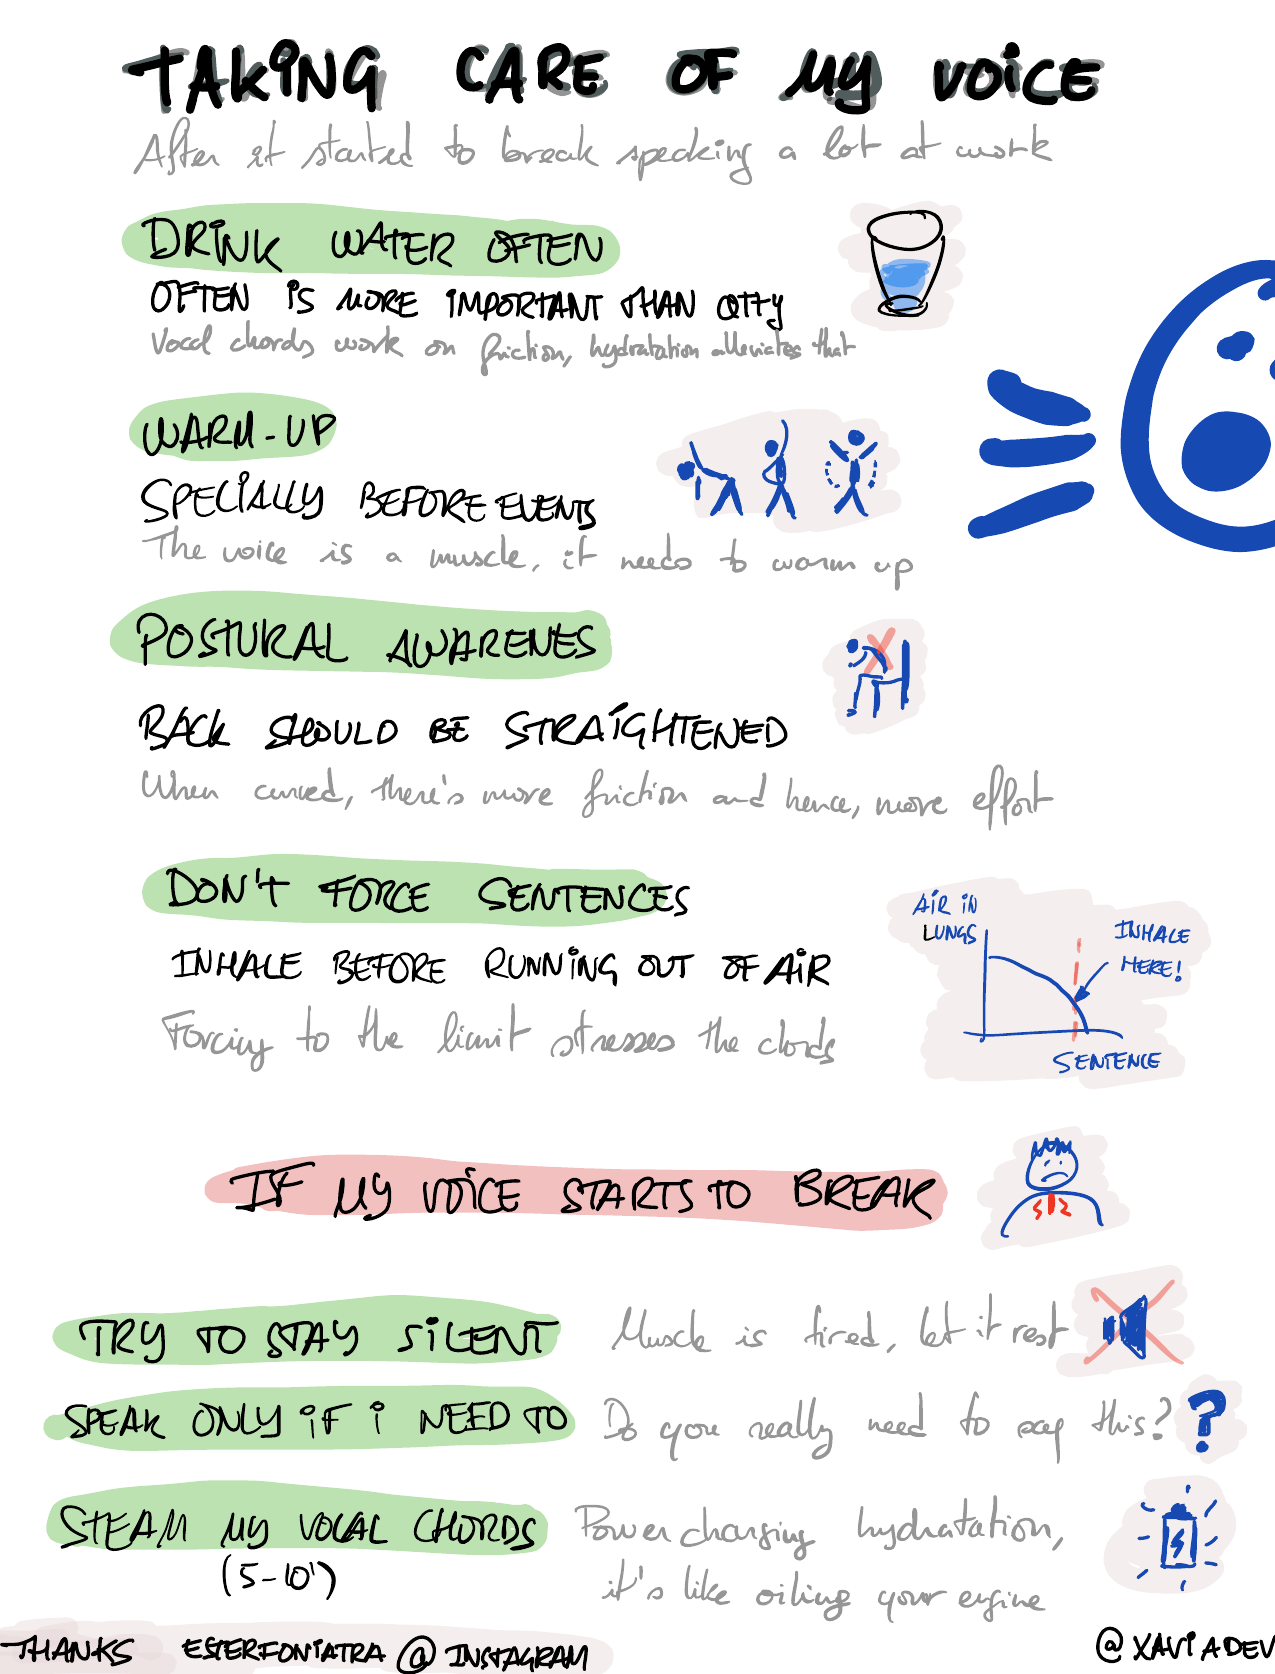 TAKING CARE OF MY VOICE
After it started to break speaking a lot at work
DRINK WATER OFTEN
OFTEN IS MORE IMPORTANT THAN QTTY
Vocal chords work on friction, hydratation alleviates that
WARM-UP
SPECIALLY BEFORE EVENTS
The voice is a muscle, it needs to warm up
POSTURAL AWARENES
BACK SHOULD BE STRAIGHTENED
When curved, there's more friction and hence, more effort
DON'T FORCE SENTENCES
INHALE BEFORE RUNNING OUT OF AIR
Forcing to the limit stresses the chords
AIR IN
LUNGS
INHALE
HERE!
SENTENCE
IF MY VOICE STARTS TO BREAK
TRY TO STAY SILENT
Muscle is tired, let it rest
SPEAK ONLY IF I NEED TO
Do you really need to say this?
?
STEAM MY VOCAL CHORDS
(5-10')
Power charging hydratation,
it's like oiling your engine
THANKS ESTERFONIATRA @ INSTAGRAM
@XAVIADEV